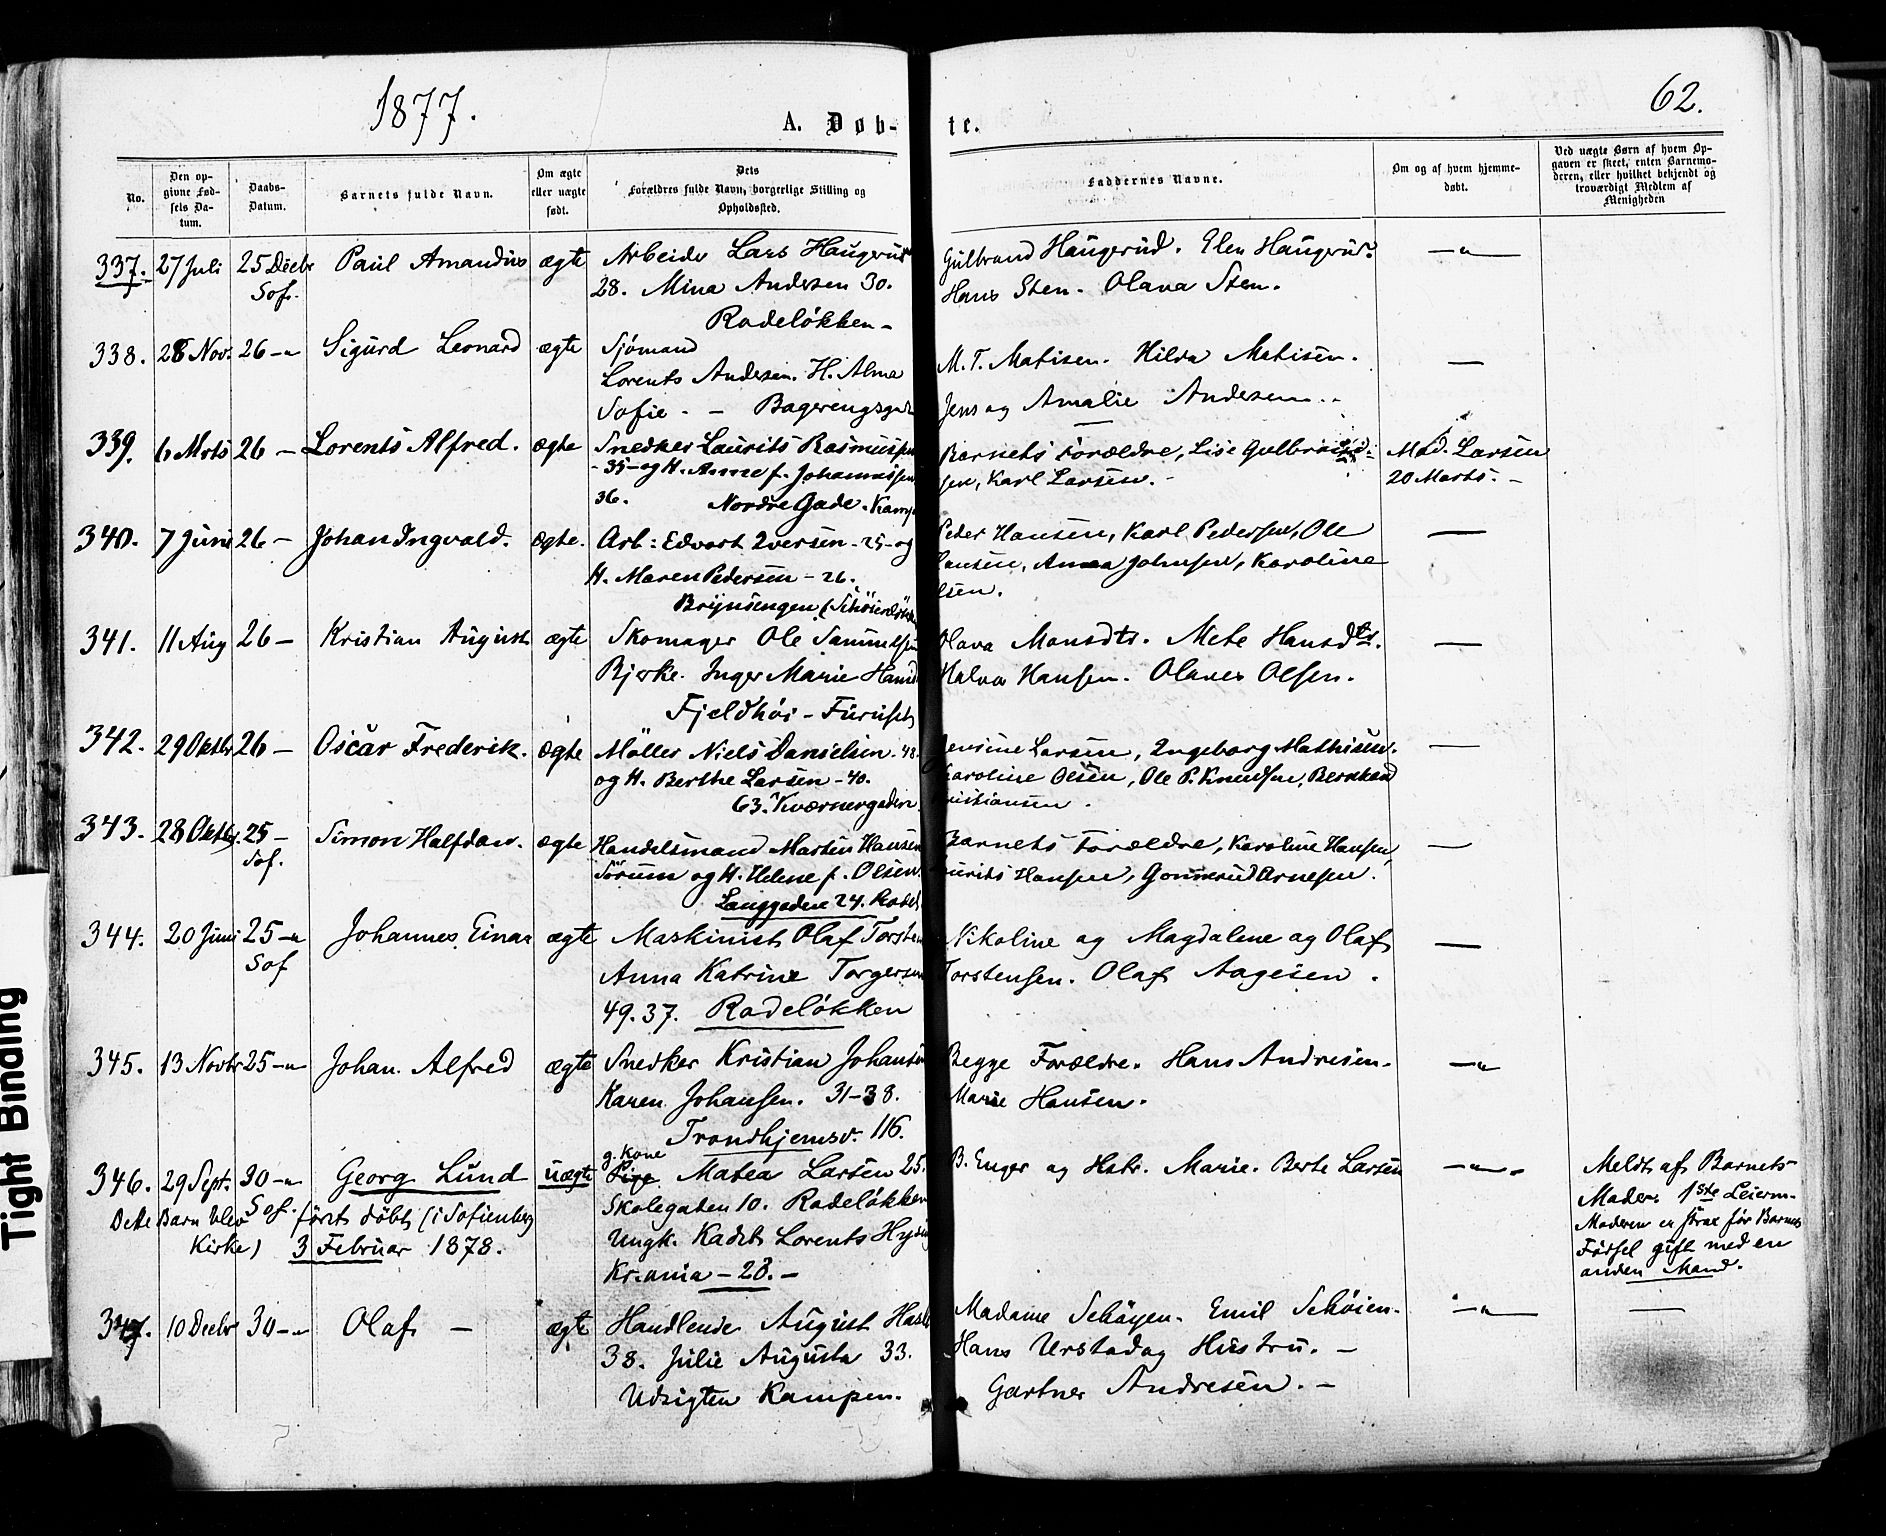 1877.
62.
A. Døb-
te.
No.
Den op-
givne Fød-
sels Da-
tum.
Daabs-
Datum.
Barnets fulde Navn.
Om ægte
eller uægte
født.
Dets
Forældres fulde Navn, borgerlige Stilling og
Opholdssted.
Faddernes Navne.
Om og af hvem hjemme-
døbt.
Ved uægte Børn af hvem Op-
gaven er skeet, enten Barnemo-
deren, eller hvilket bekjendt og
troværdigt Medlem af
Menigheden
337. 27 Juli 25 Decbr Paul Amandus ægte Arbeider Lars Haugerud Gulbrand Haugerud. Elen Haugerud. —"—
Sof. 28. Mina Andersen 30. Hans Sten. Olava Sten.
Rodeløkken –
338. 28 Nov. 26 –" Sigurd Leonard ægte Sjömand M. T. Matisen. Hilda Matisen. —
Lorents Andersen. H. Alma
Sofie. – Jens og Amalie Andersen.
339. 6 Mrts 26 – Lorents Alfred. ægte Snedker Laurits Rasmussen Barnets Forældre, Lise Mad. Larsen
- 35 - og H. Anne f. Johannessen sen, Karl Larsen. 20 Marts. –
36. Nordre Gade.
340. 7 Juni 26 – Johan Ingvald. ægte. Arb: Edvart Iversen - 25 - og Peder Hansen, Karl Pedersen, Ole —
H. Maren Pedersen - 26. Anna Johnsen, Karoline
341. 11 Aug 26 – Kristian August ægte Skomager Ole Samuelsen Olava Monsdtr. Mete Hansdtr. —
Bjerke. Inger Marie Halvor Hansen. Olaves Olsen.
Fjeldhöi – Furuset
342. 29 Oktbr 26 – Oscar Frederik. ægte Möller Niels Danielsen. 48. Jensine Larsen, Ingeborg Mathisen. —
og H. Berthe Larsen - 40. Karoline Olsen, Ole P. Knudsen, Bernhard
63. Kværnergaden Kristiansen.
343. 28 Oktbr. 25 – Simon Halfdan. ægte Handelsmand Martin Hansen Barnets Forældre, Karoline Hansen, —
Sof. Sörum og H. Helene f. Olsen. Laurits Hansen, Arnesen.
Langgaden 24.
344. 20 Juni 25 –" Johannes Einar ægte Maskinist Olaf Nikoline og Magdalene og Olaf —
Sof Anna Katrine Torgersen Torstensen. Olaf Aagesen.
49. 37. Rodeløkken
345. 13 Novbr 25 –" Johan Alfred ægte Snedker Kristian Johansen Begge Forældre. Hans Andresen. —"
Karen Johansen. 31 – 38. Marie Hansen.
Trondhjemsv. 116.
g. Kone
346. 29 Sept. 30 –" Georg Lund uægte Pige Matea Larsen 25. B. Enger og Hstr. Marie. Berte Larsen —"— Meldt af Barnets
Sof. Skolegaden 10. Rodeløkken Moder. 1ste Leierm.
Dette Barn blev først døbt (i Sofienberg Ungk. Kadet Lorents Moderen er for Barnets
Kirke) 3 Februar 1878. Kr.ania – 28. – Fødsel gift med en
anden Mand.
347. 10 Decbr 30 –" Olaf – ægte Handlende August Madame Schøyen. Emil Schøien. —"— —
38. Julie Augusta 33. Hans Urstad og Hustru. –
Udsigten Kampen. Gartner Andresen. –
Tight Binding